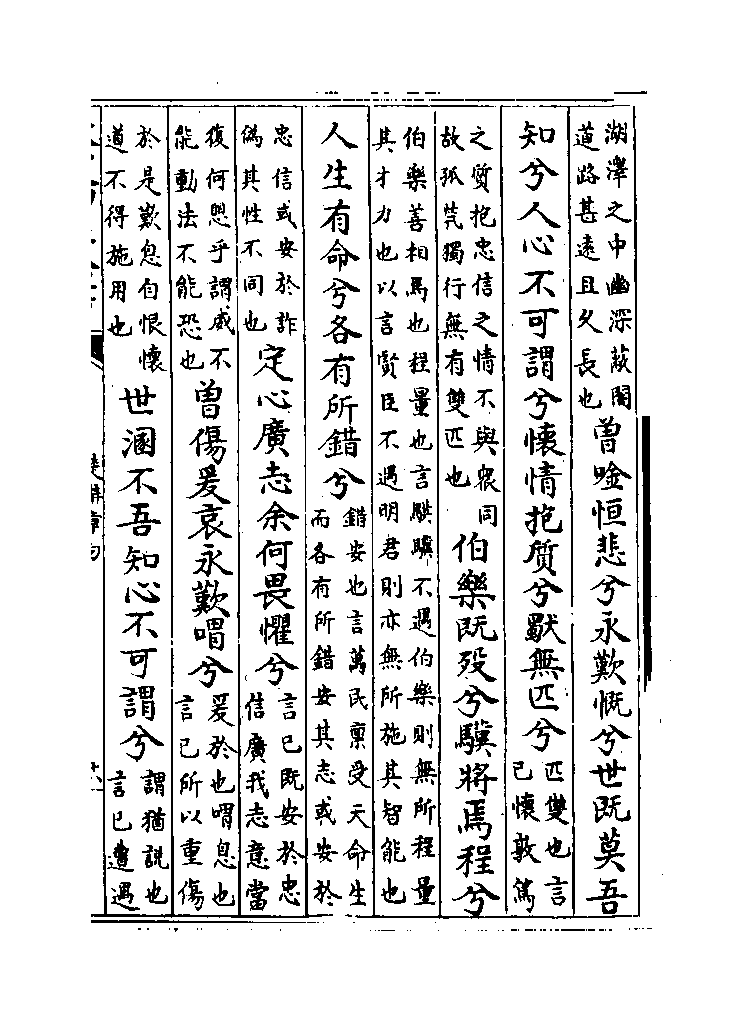 湖澤之中幽深蔽闇
道路甚遠且久長也
曽唫恒悲兮永歎慨兮世既莫吾
知兮人心不可謂兮懷情抱質兮獸無匹兮
匹雙也言
已懷敦篤
之質抱忠信之情不與衆同
故孤煢獨行無有雙匹也
伯樂既歿兮驥將焉程兮
伯樂善相馬也程量也言騏驥不遇伯樂則無所程量
其才力也以言賢臣不遇明君則亦無所施其智能也
人生有命兮各有所錯兮
錯安也言萬民禀受天命生
而各有所錯安其志或安於
忠信或安於詐
偽其性不同也
定心廣志余何畏懼兮
言已既安於忠
信廣我志意當
復何思乎謂威不
能動法不能恐也
曽傷爰哀永歎喟兮
爰於也喟息也
言已所以重傷
於是歎息自恨懷
道不得施用也
世溷不吾知心不可謂兮
謂猶説也
言已遭遇
楚辭章句